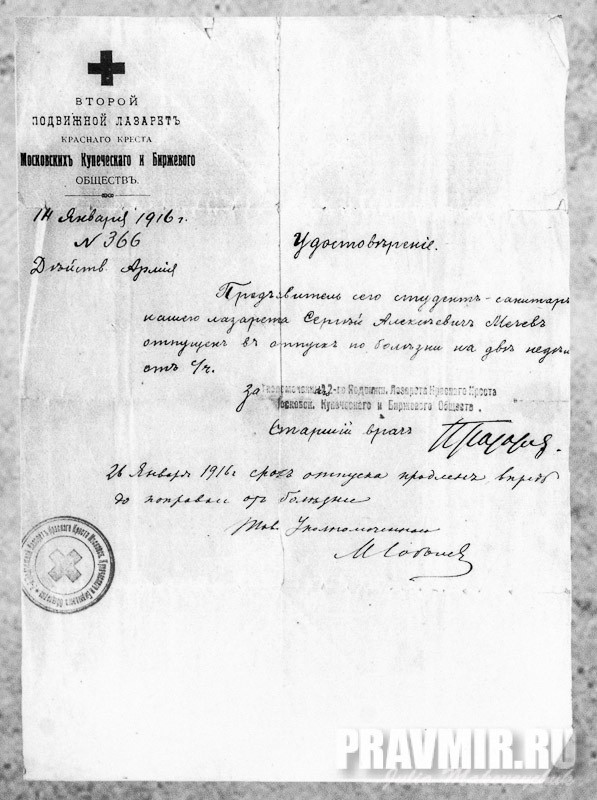 ВТОРОЙ
ПОДВИЖНОЙ ЛАЗАРЕТЪ
КРАСНАГО КРЕСТА
Московскихъ Купеческаго и Биржевого
ОБЩЕСТВЪ.
14 Января 1916 г.
N 366
Дѣйств. Армія
Удостовѣреніе.
Предъявитель сего студентъ-санитаръ
нашего лазарета Сергѣй Алексѣевичъ Мечевъ
отпущенъ въ отпускъ по болѣзни на двѣ недѣли
отъ с/ч.
За Уполномоченный 2-го Подвижн. Лазарета Краснаго Креста
Московск. Купеческаго и Биржевого Обществъ.
Старшій врачъ
26 Января 1916 г срокъ отпуска продленъ впредь
до поправки отъ болѣзни
Тов. Уполномоченнаго
М Соболев
PRAVMIR.RU